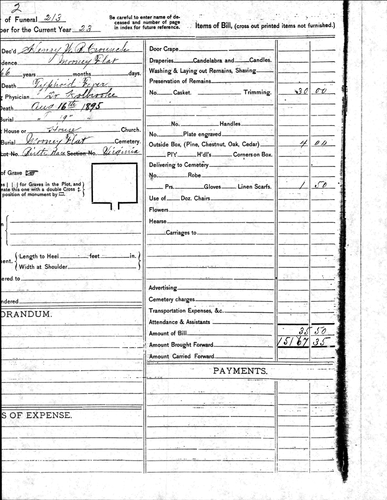 2
of Funeral 213
Be careful to enter name of deceased and number of page in index for future reference.
ber for the Current Year 23
Items of Bill, (cross out printed items not furnished.)
Dec'd Henry W. P. Crouch
idence Money Flat
66 years months days.
Death Typhoid Fever
Physician Dr Holbrooke
Death Aug 16th 1895
" "
House or House Church.
Burial Money Flat Cemetery
Lot No. Section No. Virginia
of Grave
for Graves in the Plot, and
nate this one with a double Cross
position of monument by
Length to Heel feet in.
Width at Shoulder
ered to
ndered
ORANDUM.
S OF EXPENSE.
Door Crape
Draperies Candelabra and Candles.
Washing & Laying out Remains, Shaving
Preservation of Remains
No. Casket. Trimming. 30 00
No. Handles
Plate engraved
Outside Box (Pine, Chestnut, Oak, Cedar) 4 00
H'dl's Corners on Box.
Delivering to Cemetery
No. Robe
Prs. Gloves Linen Scarfs. 1 50
Use of Doz. Chairs
Flowers
Hearse
Carriages to
Advertising
Cemetery charges
Transportation Expenses, &c.
Attendance & Assistants
Amount of Bill 35 50
Amount Brought Forward 15167 35
Amount Carried Forward
PAYMENTS.